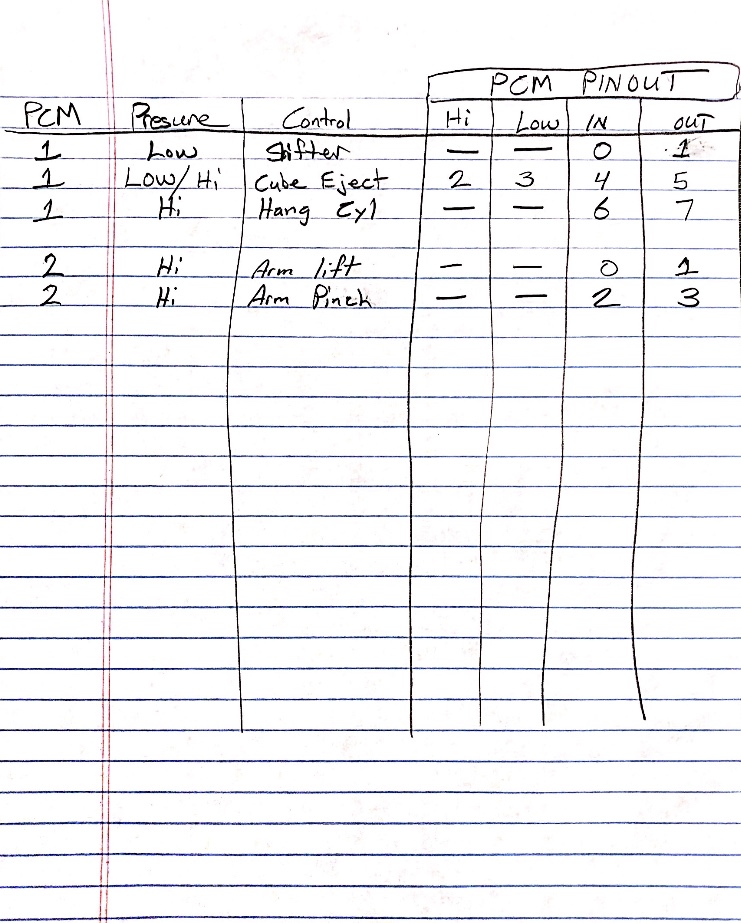 PCM PINOUT
PCM Pressure Control Hi Low IN OUT
1 Low Shifter — — 0 1
1 Low/Hi Cube Eject 2 3 4 5
1 Hi Hang Cyl — — 6 7
2 Hi Arm lift — — 0 1
2 Hi Arm Pinch — — 2 3